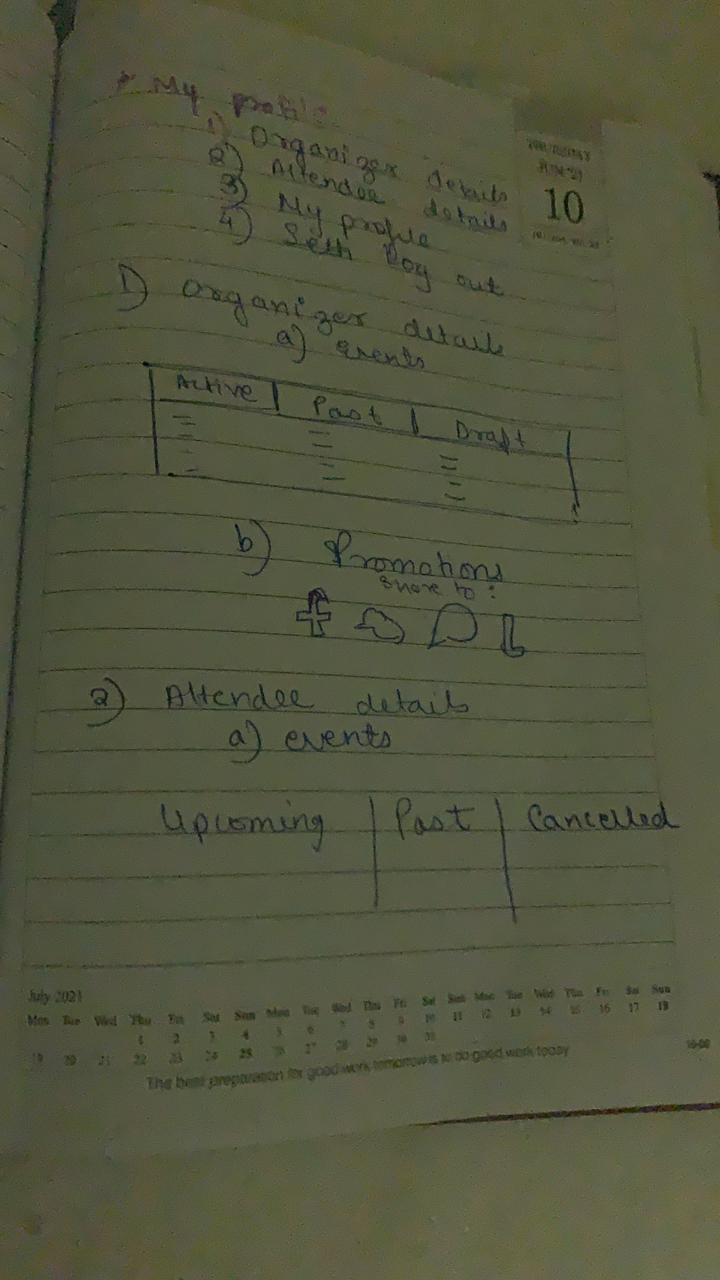 My profile
1) Organizer details
2) Attendee details
3) My profile
4) Log out
THURSDAY
JUNE '21
10
1) Organizer details
a) events
Active | Past | Draft
b) Promotions
Share to :
2) Attendee details
a) events
Upcoming | Past | Cancelled
July 2021
Mon Tue Wed Thu Fri Sat Sun Mon Tue Wed Thu Fri Sat Sun Mon Tue Wed Thu Fri Sat Sun
1 2 3 4 5 6 7 8 9 10 11 12 13 14 15 16 17 18
19 20 21 22 23 24 25 26 27 28 29 30 31
The best preparation for good work tomorrow is to do good work today